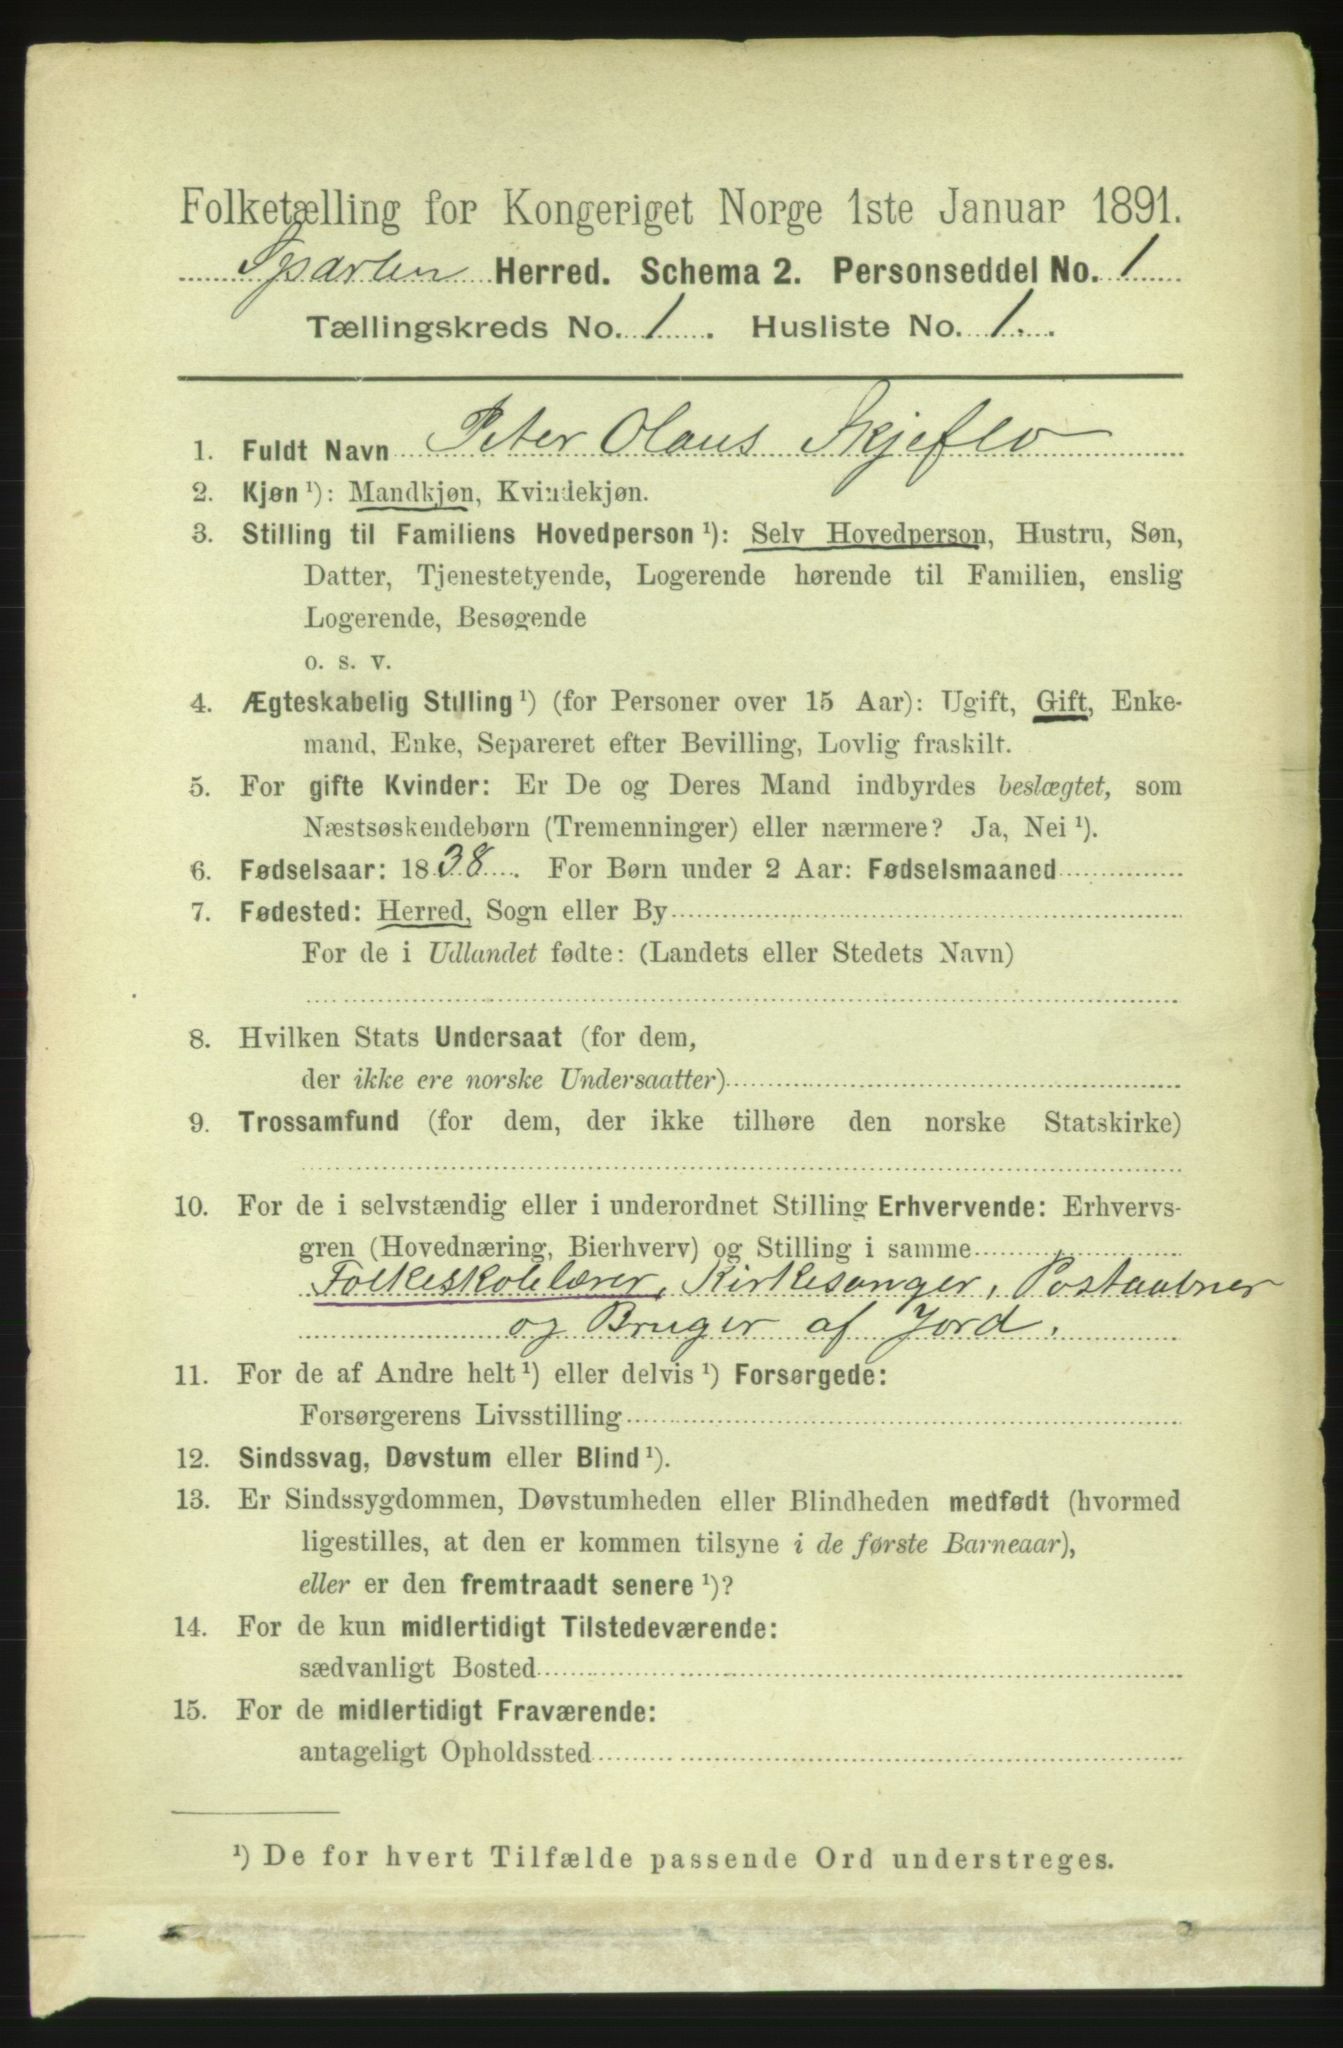 Folketælling for Kongeriget Norge 1ste Januar 1891.
Sparbu Herred. Schema 2. Personseddel No. 1
Tællingskreds No. 1. Husliste No. 1.
1. Fuldt Navn Peter Olaus Skjeflo
2. Kjøn ¹): Mandkjøn, Kvindekjøn.
3. Stilling til Familiens Hovedperson ¹): Selv Hovedperson, Hustru, Søn,
Datter, Tjenestetyende, Logerende hørende til Familien, enslig
Logerende, Besøgende
o. s. v.
4. Ægteskabelig Stilling ¹) (for Personer over 15 Aar): Ugift, Gift, Enke-
mand, Enke, Separeret efter Bevilling, Lovlig fraskilt.
5. For gifte Kvinder: Er De og Deres Mand indbyrdes beslægtet, som
Næstsøskendebørn (Tremenninger) eller nærmere? Ja, Nei ¹).
6. Fødselsaar: 1838. For Børn under 2 Aar: Fødselsmaaned
7. Fødested: Herred, Sogn eller By
For de i Udlandet fødte: (Landets eller Stedets Navn)
8. Hvilken Stats Undersaat (for dem,
der ikke ere norske Undersaatter)
9. Trossamfund (for dem, der ikke tilhøre den norske Statskirke)
10. For de i selvstændig eller i underordnet Stilling Erhvervende: Erhvervs-
gren (Hovednæring, Bierhverv) og Stilling i samme
Folkeskolelærer, Kirkesanger, Postaabner
og Bruger af Jord.
11. For de af Andre helt ¹) eller delvis ¹) Forsørgede:
Forsørgerens Livsstilling
12. Sindssvag, Døvstum eller Blind ¹).
13. Er Sindssygdommen, Døvstumheden eller Blindheden medfødt (hvormed
ligestilles, at den er kommen tilsyne i de første Barneaar),
eller er den fremtraadt senere ¹)?
14. For de kun midlertidigt Tilstedeværende:
sædvanligt Bosted
15. For de midlertidigt Fraværende:
antageligt Opholdssted
¹) De for hvert Tilfælde passende Ord understreges.